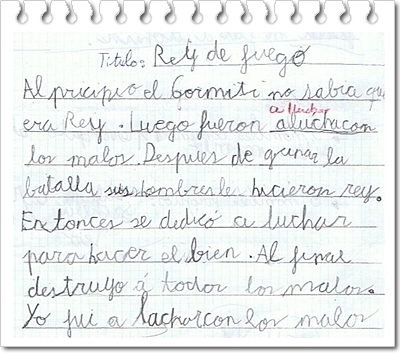 Título: Rey de fuego
Al pricipio el Gormiti no sabia que
era Rey. Luego fueron aluchacon
a luchar
los malos. Despues de ganar la
batalla sus hombres le hicieron rey.
Entonces se dedicó a luchar
para hacer el bien. Al final
destruyo á todos los malos.
Yo fui a lacharcon los malos